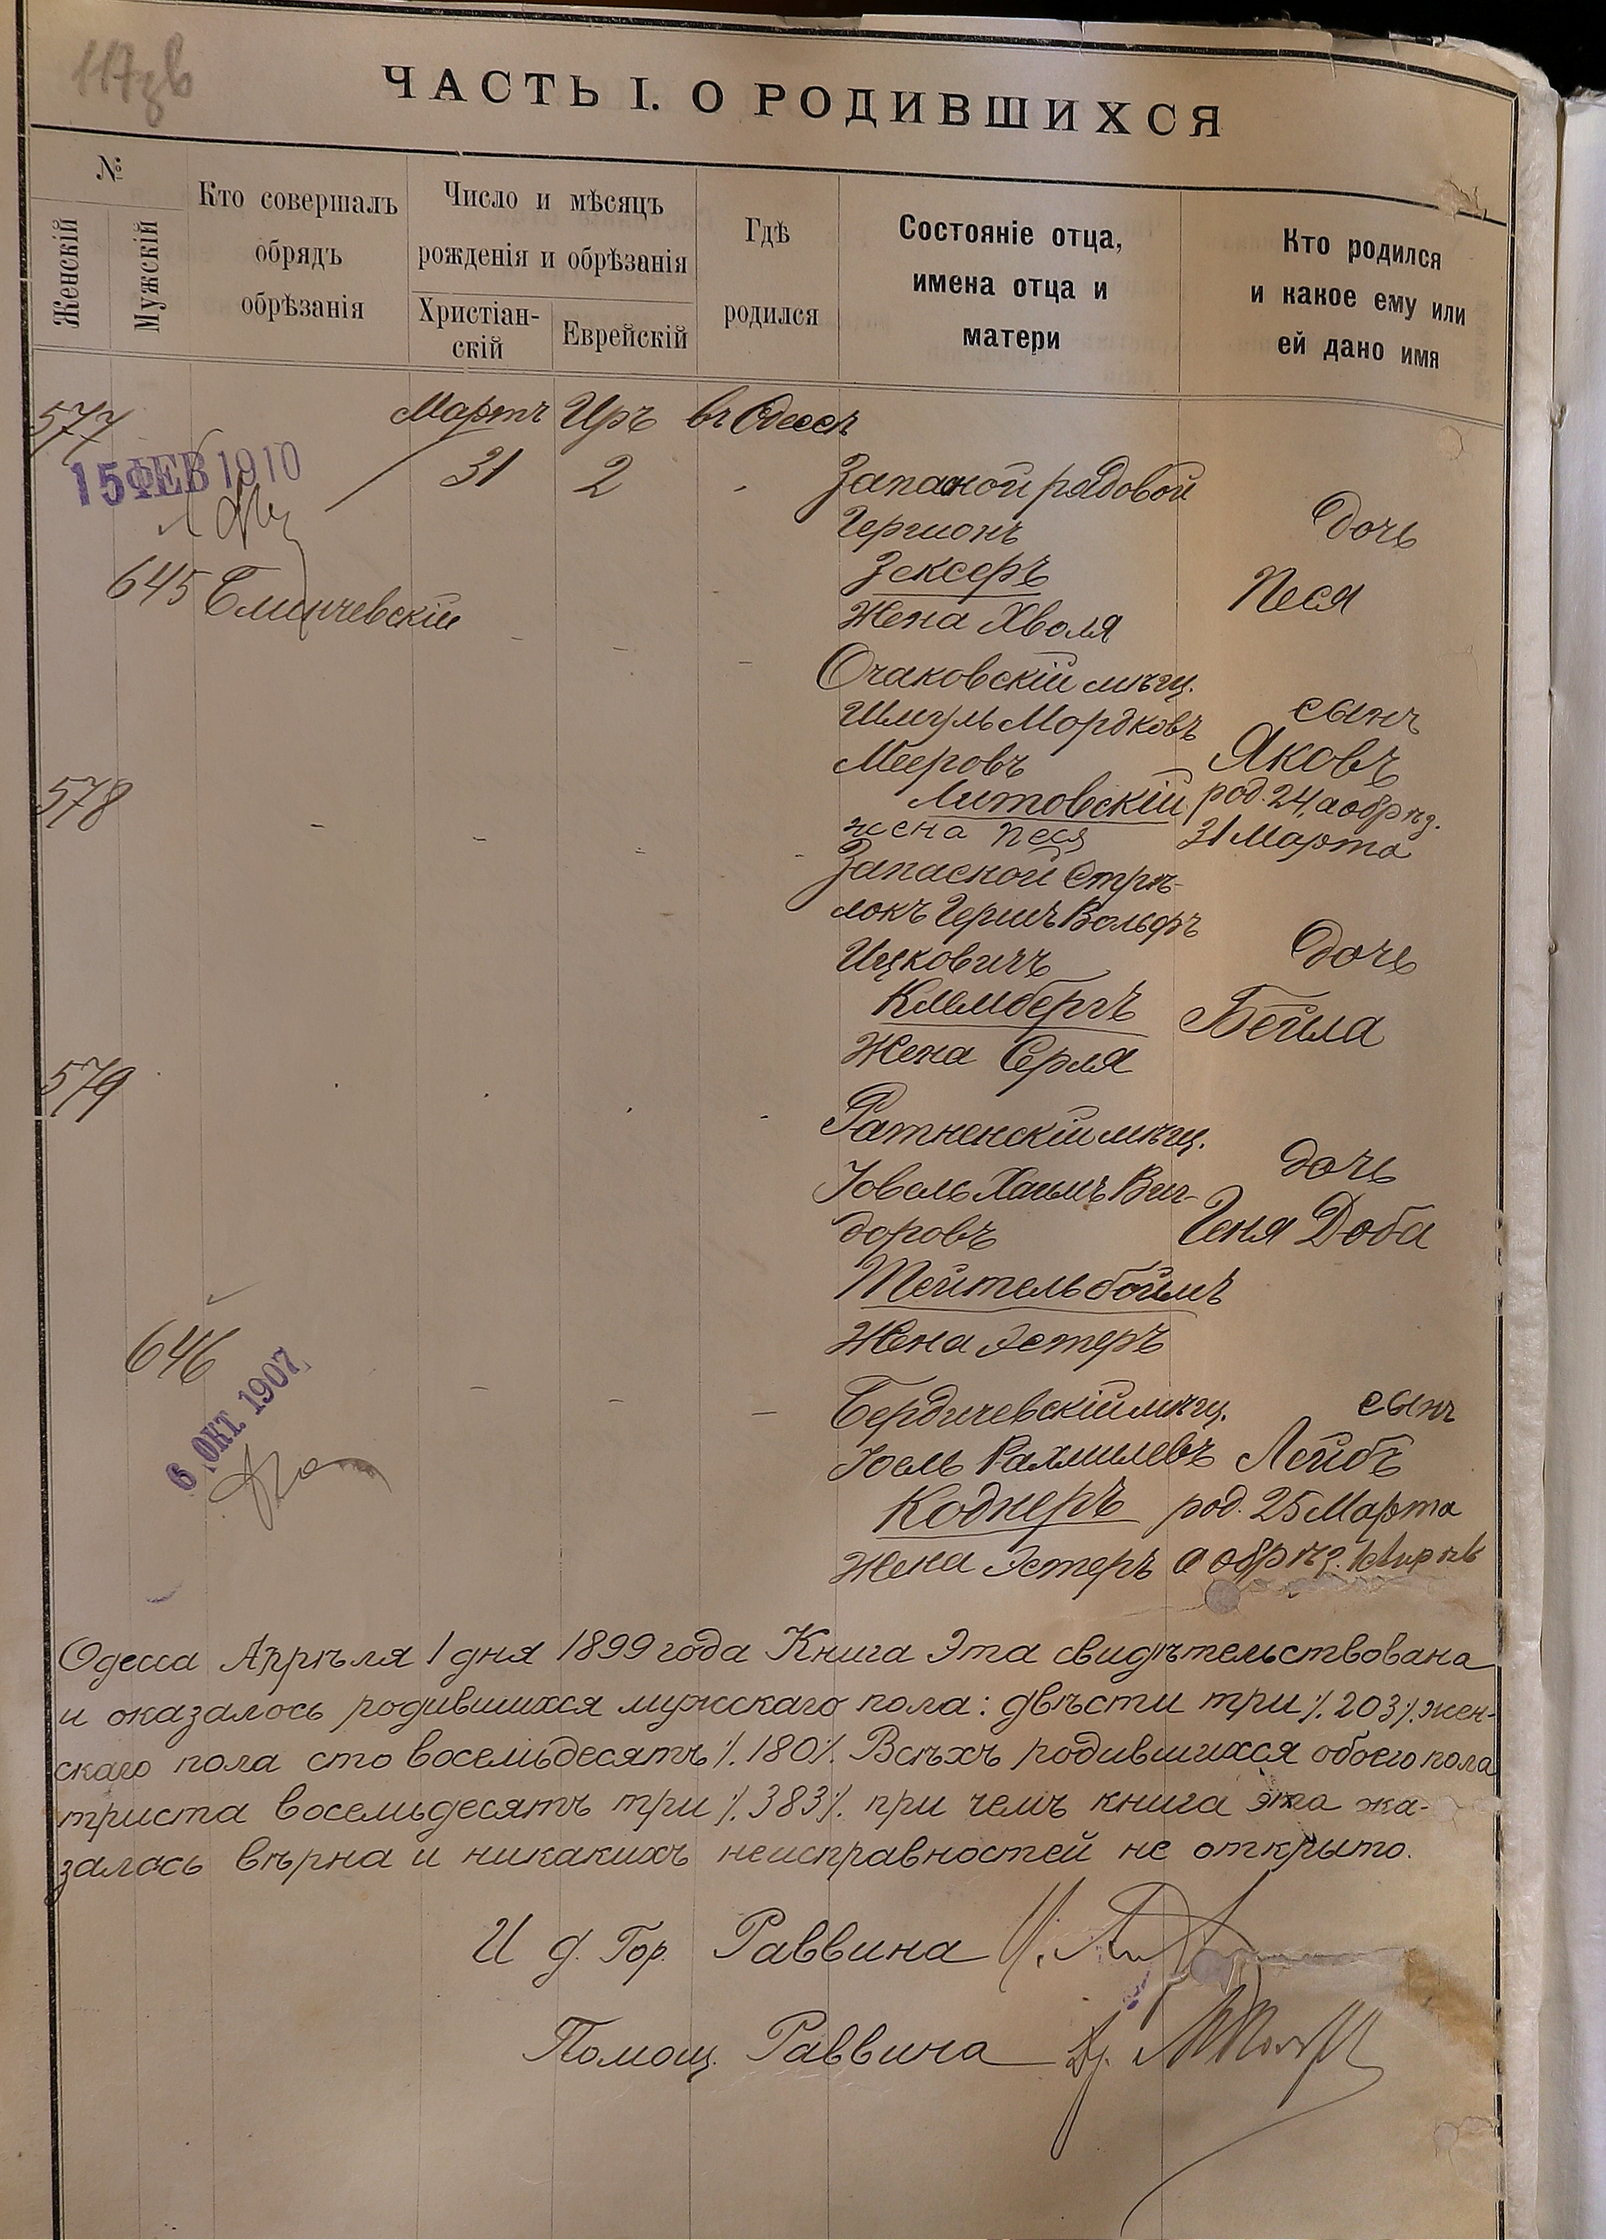 ЧАСТЬ I. О РОДИВШИХСЯ
№
Женскій
Мужскій
Кто совершалъ
обрядъ
обрѣзанія
Число и мѣсяцъ
рожденія и обрѣзанія
Христіан-
скій
Еврейскій
Гдѣ
родился
Состояніе отца,
имена отца и
матери
Кто родился
и какое ему или
ей дано имя
577
Мартъ Иръ въ Одессѣ
15 ФЕВ 1910
31 2
Запасной рядовой
Гершонъ
Зексеръ
Жена Хволя
дочь
Песя
645
Очаковскій мѣщ.
Шмуль Мордковъ
Мееровъ
Литовскій
жена Песя
сынъ
Яковъ
род. 24, а обрѣз.
31 Марта
578
Запасной Стрѣ-
локъ Гершъ Вольфъ
Ицковичъ
Клембергъ
Жена Серля
дочь
Бейла
579
Ратненскій мѣщ.
Іовель Хаимъ Виг-
доровъ
Тейтельбоймъ
Жена Эстеръ
дочь
Геня Доба
646
6 ОКТ. 1907
Бердичевскій мѣщ.
Іоель Рахмилевъ
Коднеръ
Жена Эстеръ
сынъ
Лейбъ
род. 25 Марта
а обрѣз. 1 Апрѣля
Одесса Апрѣля 1 дня 1899 года Книга Эта свидѣтельствована
и оказалось родившихся мужскаго пола: двѣсти три ./. 203 ./. жен-
скаго пола сто восемьдесятъ ./. 180 ./. Всѣхъ родившихся обоего пола
триста восемьдесятъ три ./. 383 ./. при чемъ книга эта ока-
залась вѣрна и никакихъ неисправностей не открыто.
И д. Гор. Раввина
Помощ. Раввина